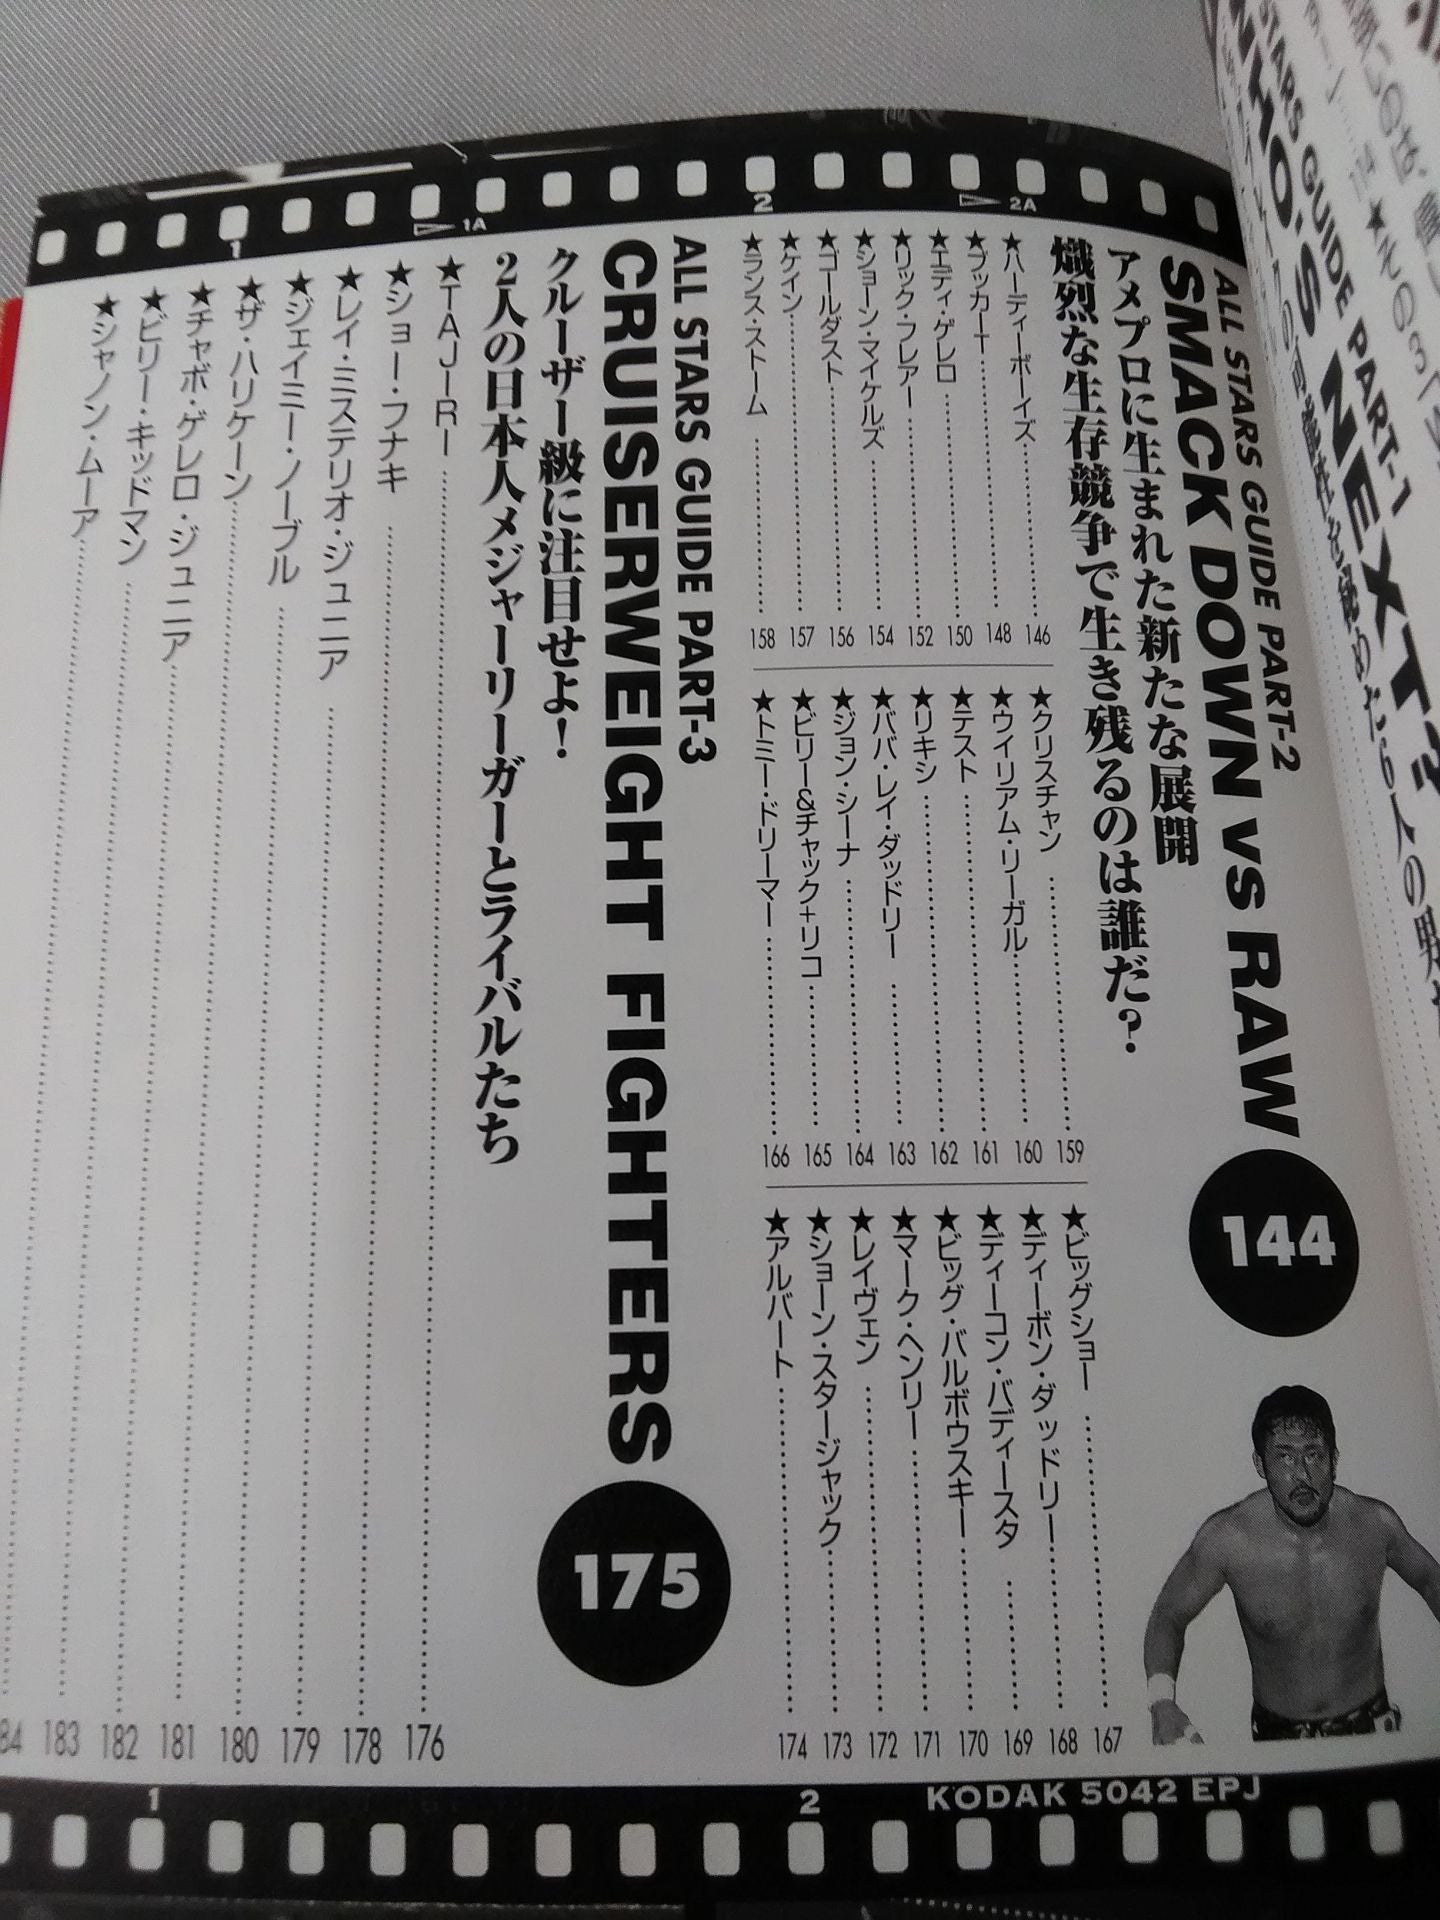 STARS GUIDE PART-1
HO'S NEXT?
ALL STARS GUIDE PART-2
SMACK DOWN vs RAW 144
アメプロに生まれた新たな展開
熾烈な生存競争で生き残るのは誰だ?
★ハーディーボーイズ……146
★ブッカーT……148
★エディ・ゲレロ……150
★リック・フレアー……152
★ショーン・マイケルズ……154
★ゴールダスト……156
★ケイン……157
★ランス・ストーム……158
★クリスチャン……159
★ウイリアム・リーガル……160
★テスト……161
★リキシ……162
★ババ・レイ・ダッドリー……163
★ジョン・シーナ……164
★ビリー&チャック+リコ……165
★トミー・ドリーマー……166
★ビッグショー……167
★ディーボン・ダッドリー……168
★ディーコン・バディースタ……169
★ビッグ・バルボウスキー……170
★マーク・ヘンリー……171
★レイヴェン……172
★ショーン・スタージャック……173
★アルバート……174
ALL STARS GUIDE PART-3
CRUISERWEIGHT FIGHTERS 175
クルーザー級に注目せよ!
2人の日本人メジャーリーガーとライバルたち
★TAJIRI……176
★ショー・フナキ……178
★レイ・ミステリオ・ジュニア……179
★ジェイミー・ノーブル……180
★ザ・ハリケーン……181
★チャボ・ゲレロ・ジュニア……182
★ビリー・キッドマン……183
★シャノン・ムーア……84
1
1A
2
2A
1
2
KODAK 5042 EPJ